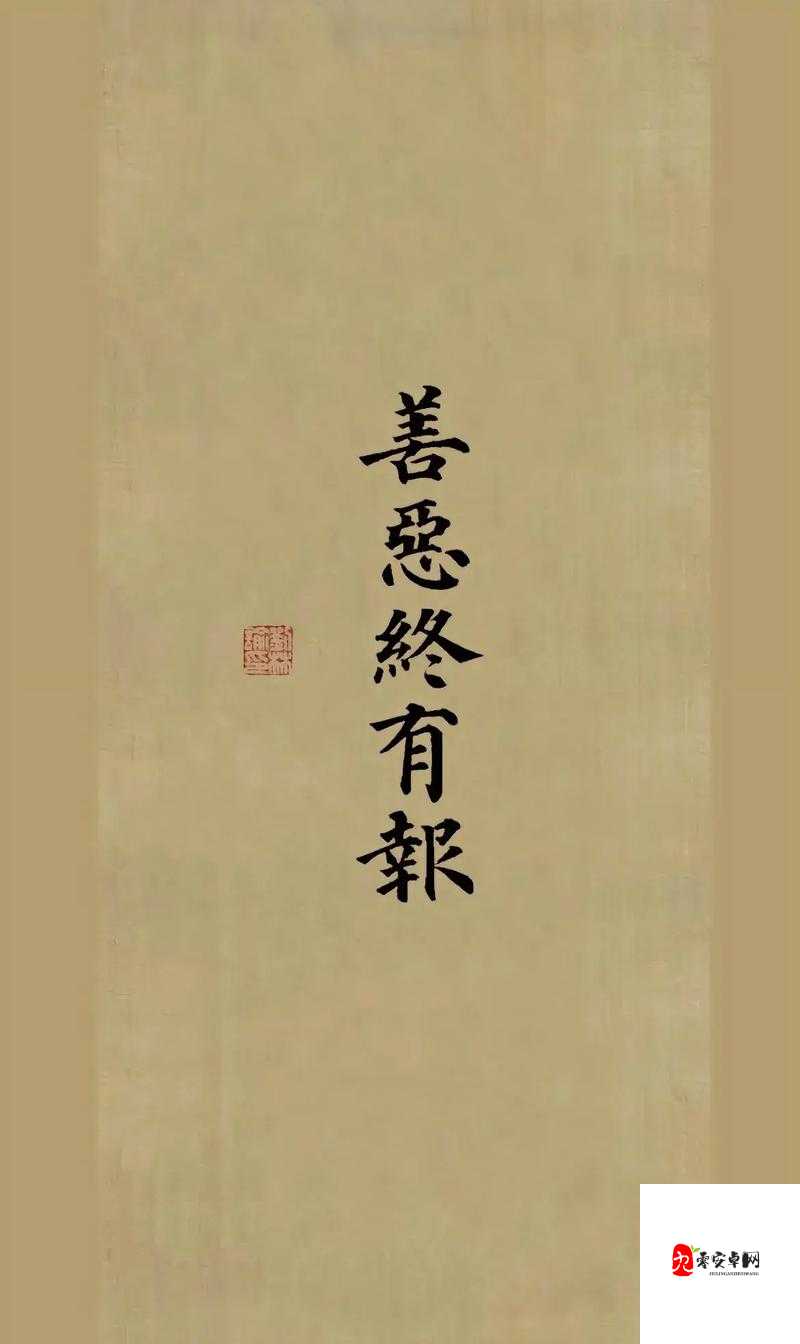 善惡終有報
九零安卓网
JIULINGANZHUOWANG